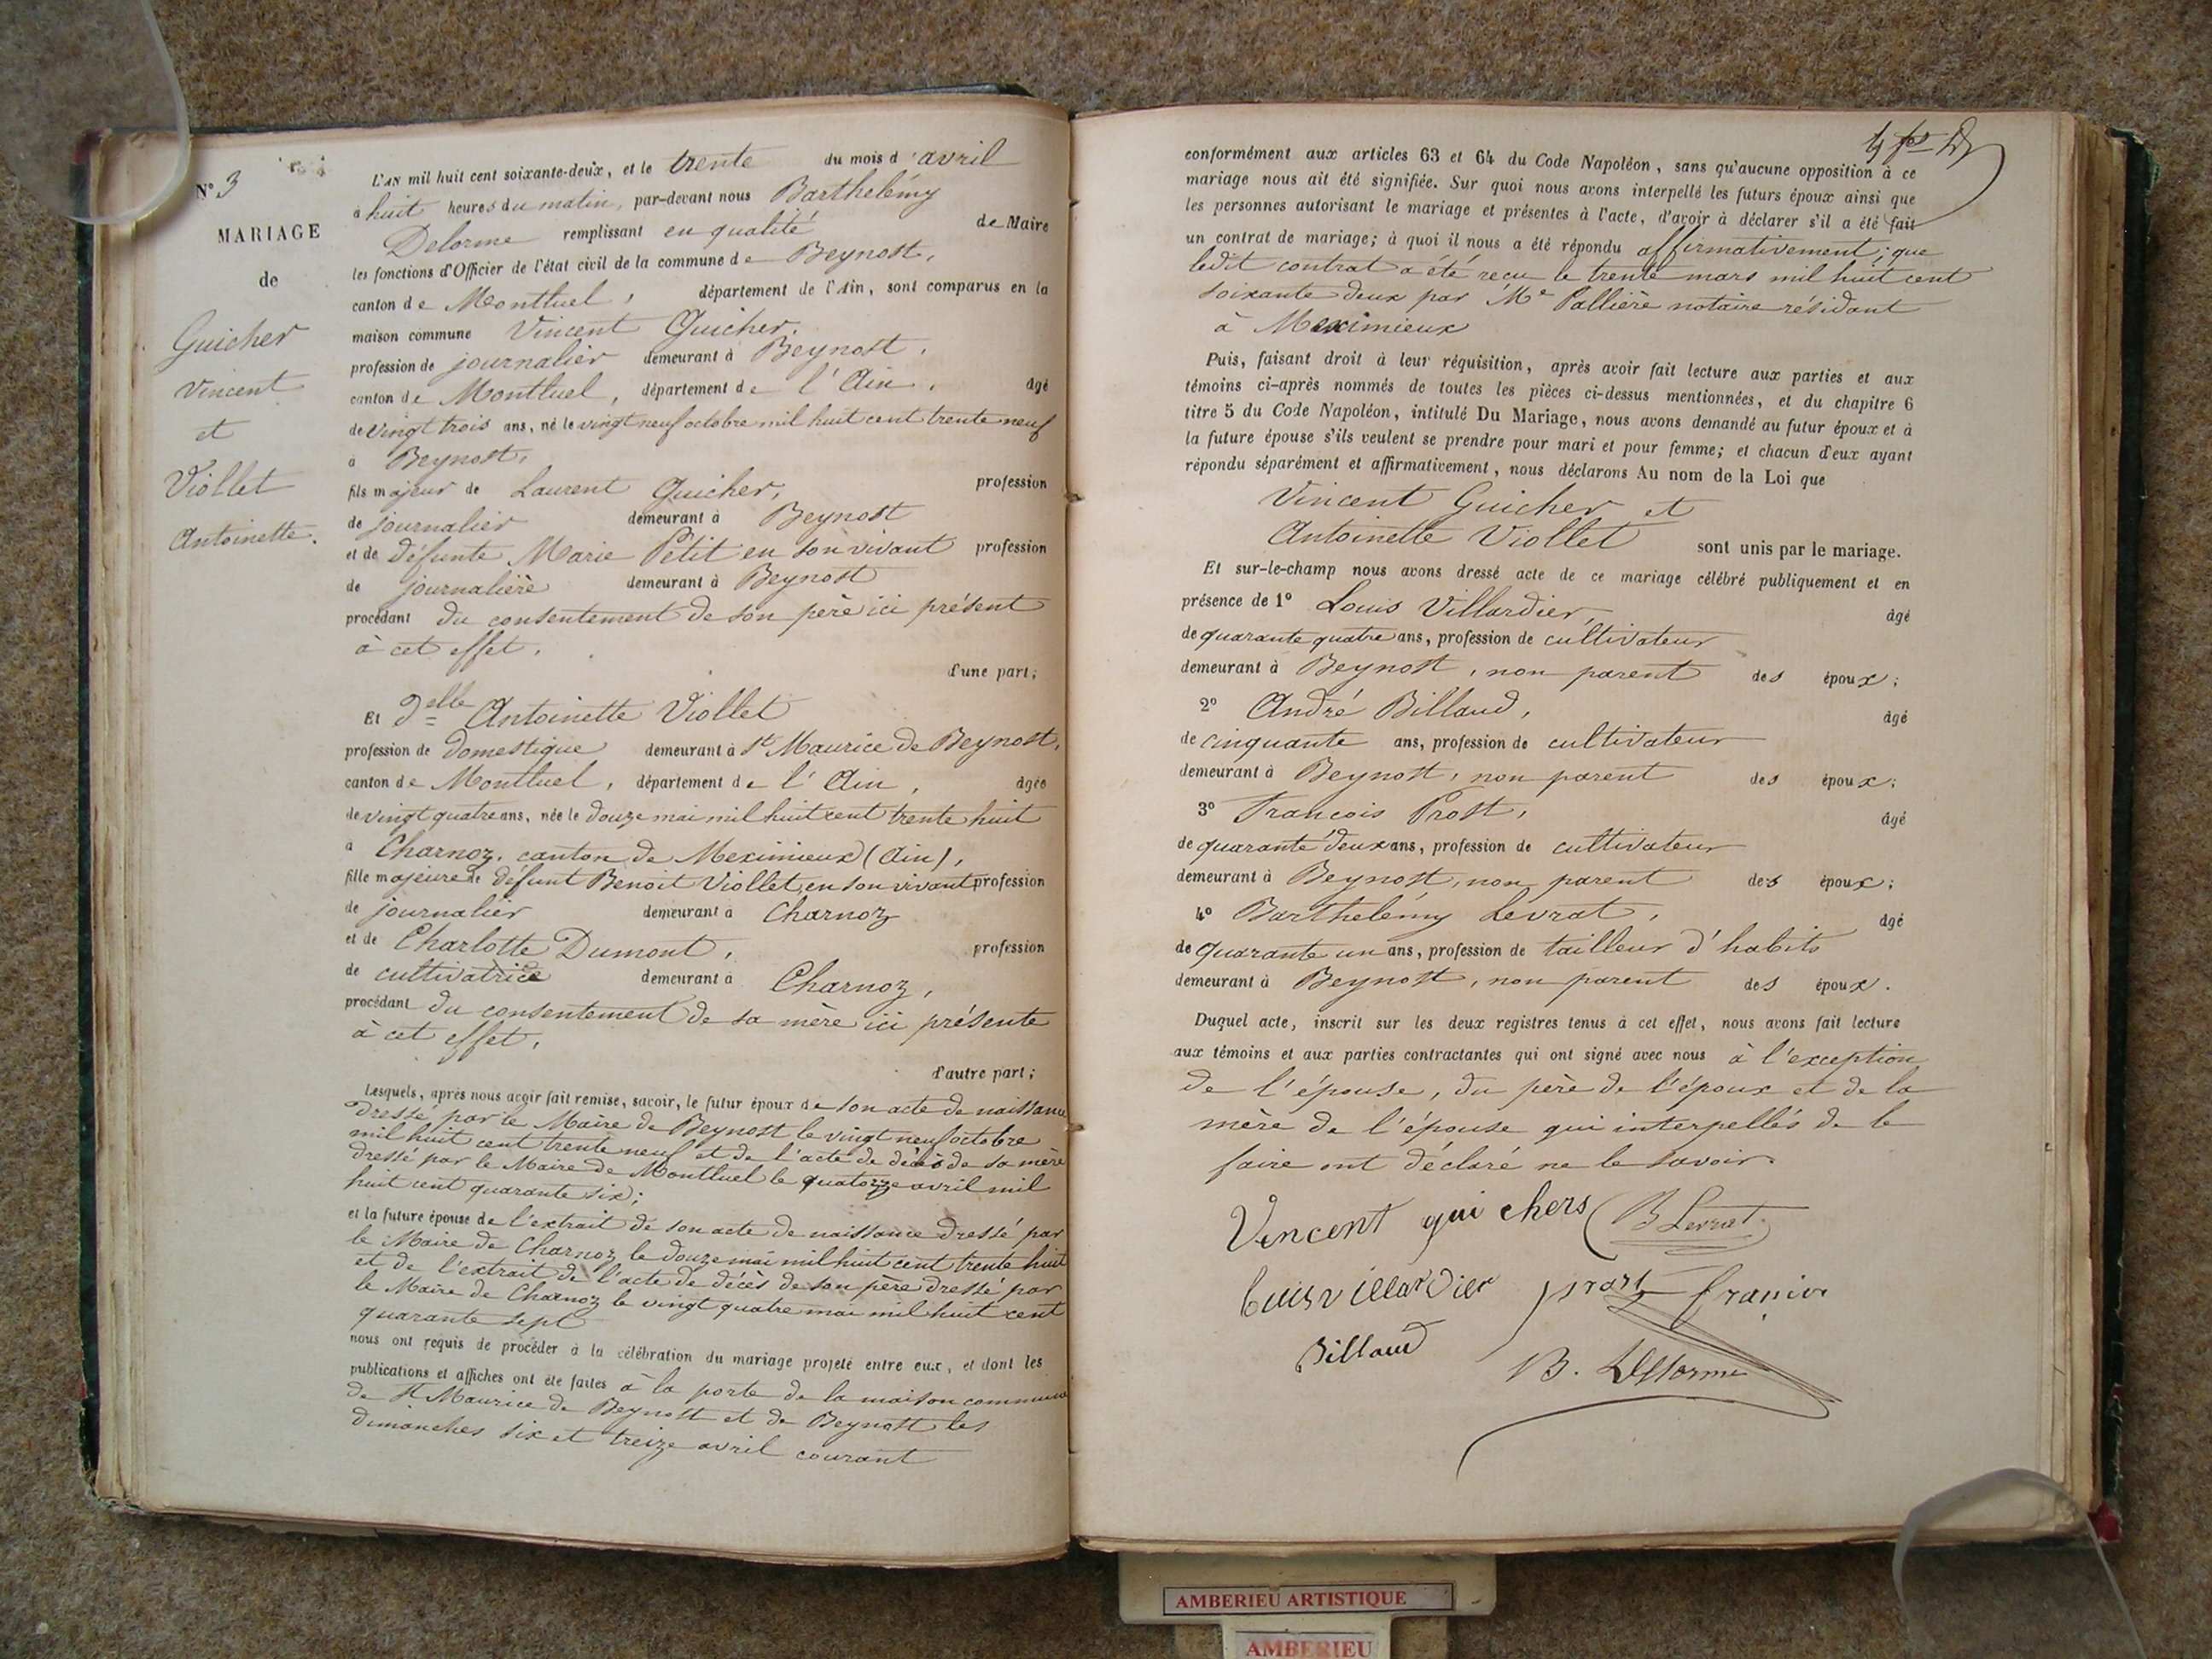 N° 3
MARIAGE
de
Guicher
Vincent
et
Viollet
Antoinette.
L'AN mil huit cent soixante-deux, et le trente du mois d'avril
à huit heures du matin, par-devant nous Barthelémy
Delorme remplissant en qualité de Maire
les fonctions d'Officier de l'état civil de la commune de Beynost,
canton de Montluel, département de l'Ain, sont comparus en la
maison commune Vincent Guicher.
profession de journalier demeurant à Beynost,
canton de Montluel, département de l'Ain, âgé
de vingt trois ans, né le vingt neuf octobre mil huit cent trente neuf
à Beynost,
fils majeur de Laurent Guicher, profession
de journalier demeurant à Beynost
et de défunte Marie Petit en son vivant profession
de journalière demeurant à Beynost
procédant du consentement de son père ici présent
à cet effet,
d'une part;
Et Delle Antoinette Viollet
profession de domestique demeurant à St Maurice de Beynost,
canton de Montluel, département de l'Ain, âgée
de vingt quatre ans, née le douze mai mil huit cent trente huit
à Charnoz, canton de Meximieux (Ain),
fille majeure de défunt Benoit Viollet, en son vivant profession
de journalier demeurant à Charnoz
et de Charlotte Dumont, profession
de cultivatrice demeurant à Charnoz,
procédant du consentement de sa mère ici présente
à cet effet,
d'autre part;
Lesquels, après nous avoir fait remise, savoir, le futur époux de son acte de naissance
dressé par le Maire de Beynost le vingt neuf octobre
mil huit cent trente neuf et de l'acte de décès de sa mère
dressé par le Maire de Montluel le quatorze avril mil
huit cent quarante six;
et la future épouse de l'extrait de son acte de naissance dressé par
le Maire de Charnoz le douze mai mil huit cent trente huit
et de l'extrait de l'acte de décès de son père dressé par
le Maire de Charnoz le vingt quatre mai mil huit cent
quarante sept
nous ont requis de procéder à la célébration du mariage projeté entre eux, et dont les
publications et affiches ont été faites à la porte de la maison commune
de St Maurice de Beynost et de Beynost les
dimanches six et treize avril courant
conformément aux articles 63 et 64 du Code Napoléon, sans qu'aucune opposition à ce
mariage nous ait été signifiée. Sur quoi nous avons interpellé les futurs époux ainsi que
les personnes autorisant le mariage et présentes à l'acte, d'avoir à déclarer s'il a été fait
un contrat de mariage; à quoi il nous a été répondu affirmativement; que
ledit contrat a été reçu le trente mars mil huit cent
soixante deux par Me Pallière notaire résidant
à Meximieux
Puis, faisant droit à leur réquisition, après avoir fait lecture aux parties et aux
témoins ci-après nommés de toutes les pièces ci-dessus mentionnées, et du chapitre 6
titre 5 du Code Napoléon, intitulé Du Mariage, nous avons demandé au futur époux et à
la future épouse s'ils veulent se prendre pour mari et pour femme; et chacun d'eux ayant
répondu séparément et affirmativement, nous déclarons Au nom de la Loi que
Vincent Guicher et
Antoinette Viollet sont unis par le mariage.
Et sur-le-champ nous avons dressé acte de ce mariage célébré publiquement et en
présence de 1° Louis Villardier, âgé
de quarante quatre ans, profession de cultivateur
demeurant à Beynost, non parent des époux;
2° André Billaud, âgé
de cinquante ans, profession de cultivateur
demeurant à Beynost, non parent des époux;
3° Francois Prost, âgé
de quarante deux ans, profession de cultivateur
demeurant à Beynost, non parent des époux;
4° Barthelémy Levrat, âgé
de quarante un ans, profession de tailleur d'habits
demeurant à Beynost, non parent des époux.
Duquel acte, inscrit sur les deux registres tenus à cet effet, nous avons fait lecture
aux témoins et aux parties contractantes qui ont signé avec nous à l'exception
de l'épouse, du père de l'époux et de la
mère de l'épouse qui interpellés de le
faire ont déclaré ne le savoir.
Vincent gui chers B Levrat
Luis villardier prost francoi
Billaud
B. Delorme
AMBERIEU ARTISTIQUE
AMBERIEU